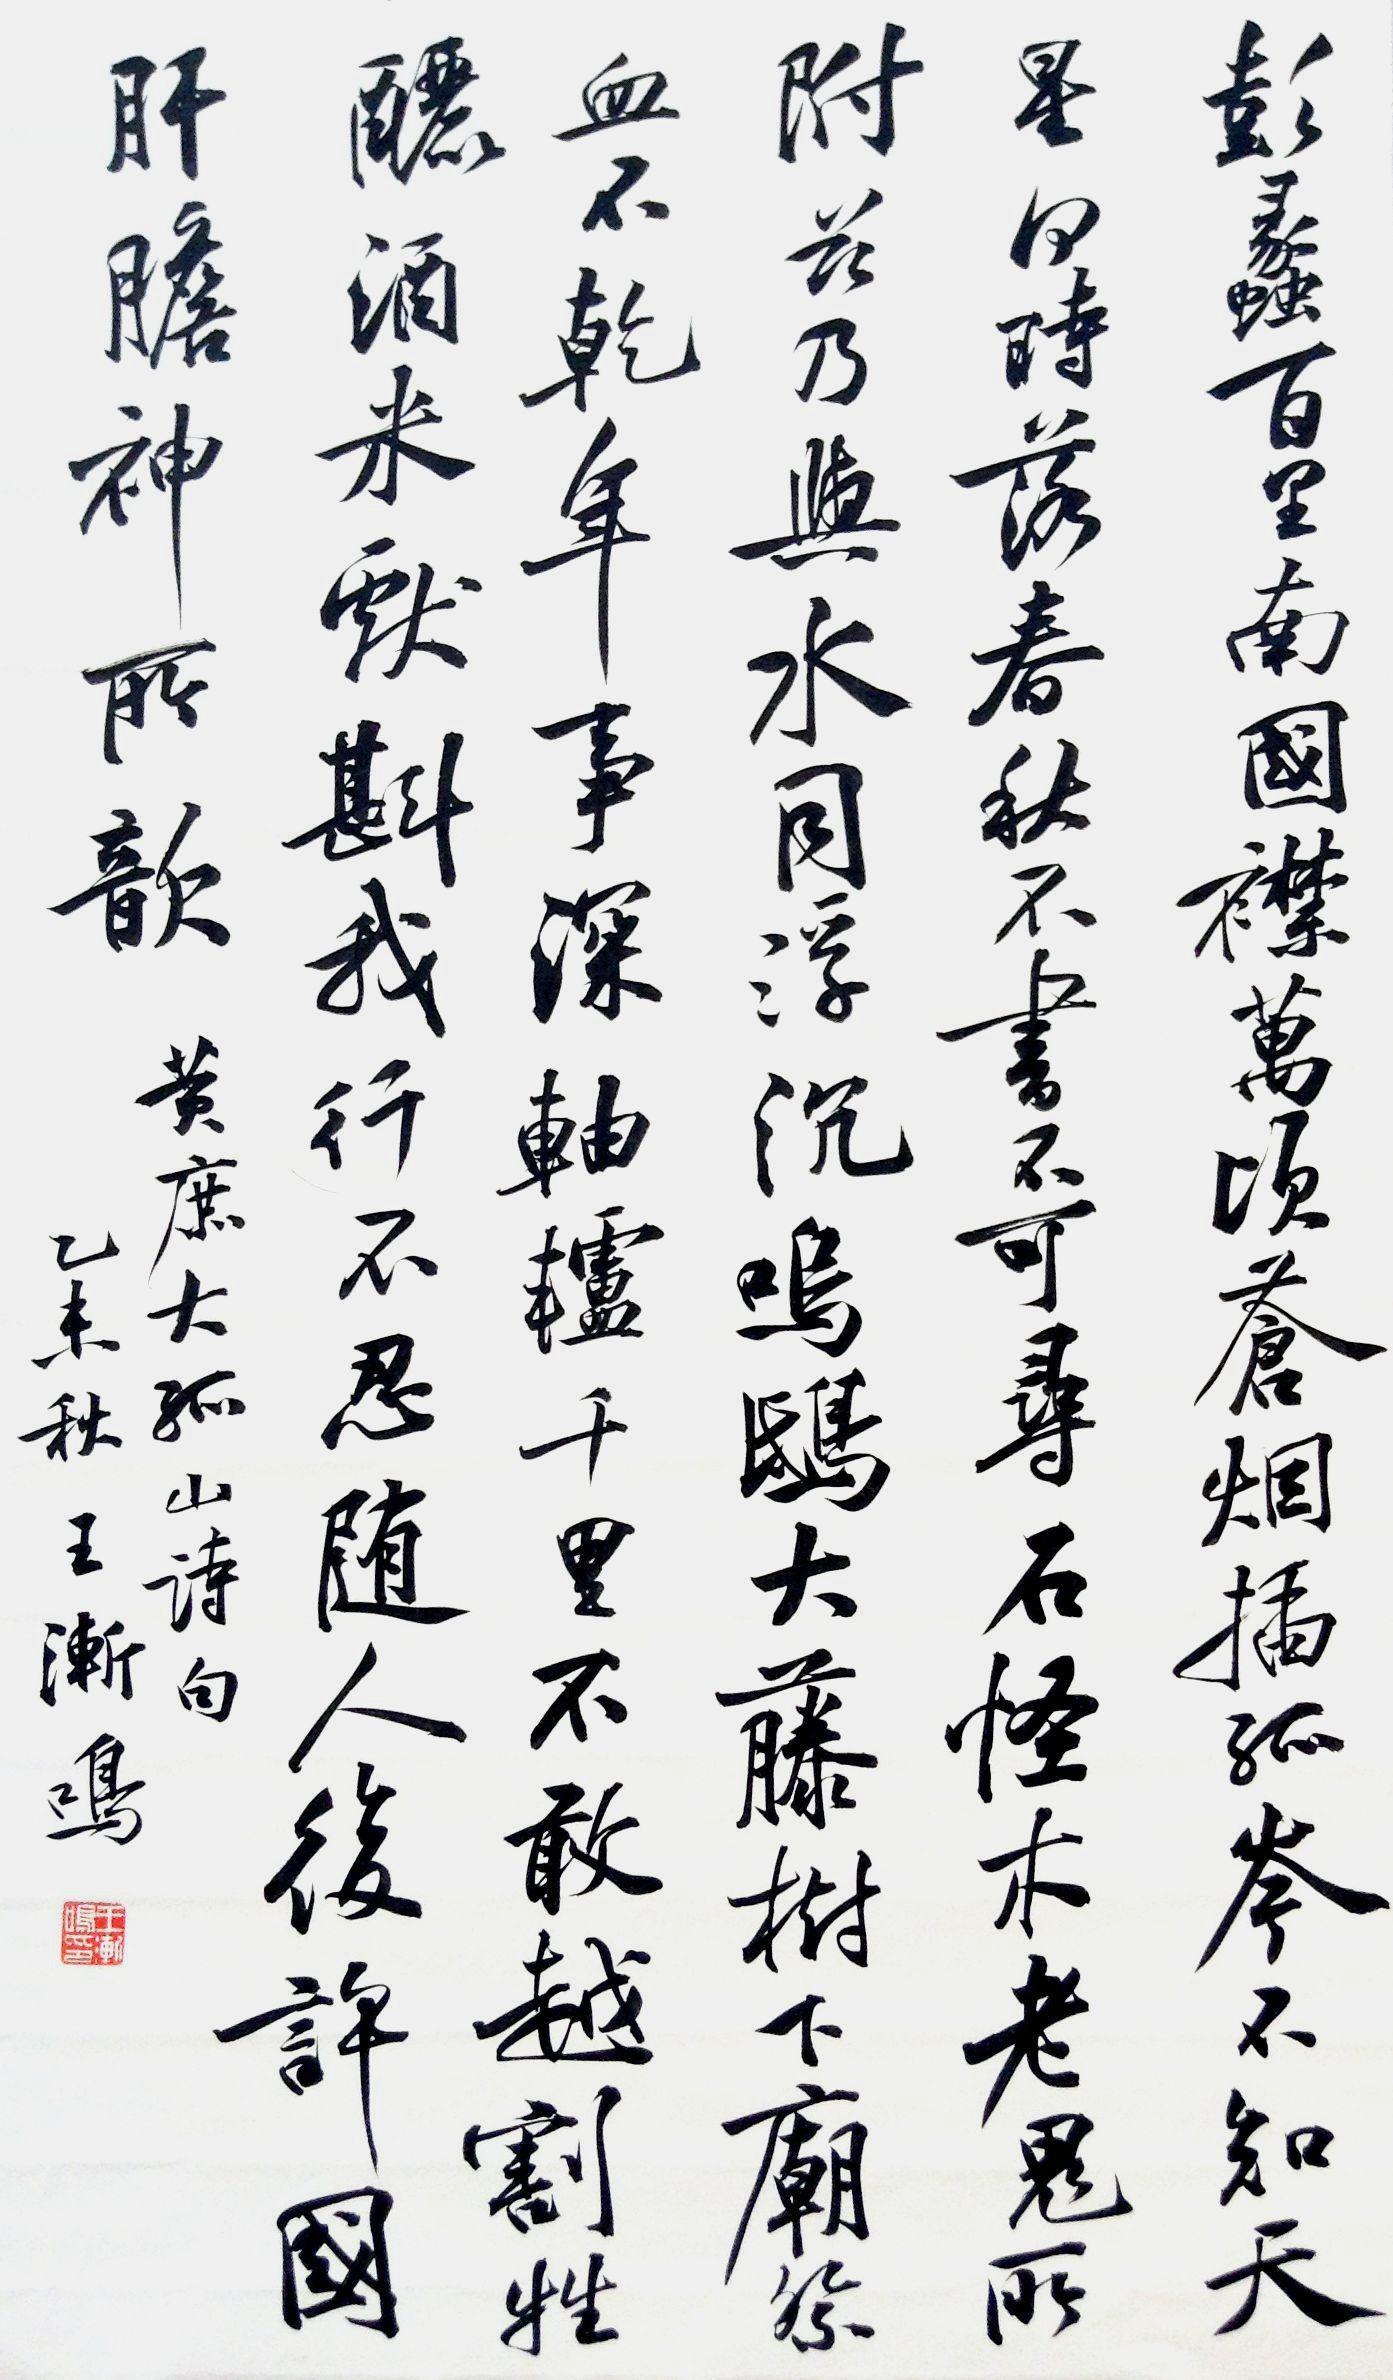 彭蠡百里南國襟萬頃蒼烟插孤岑不知天
星何時落春秋不書不可尋石怪木老鬼所
附茲乃與水同浮沉鳴鴟大藤樹下廟祭
血不乾年事深軸轤千里不敢越割牲
釃酒来獻斟我行不忍随人後許國
肝膽神所歆
黄庶大孤山詩句
乙未秋王漸鳴
王漸鳴印